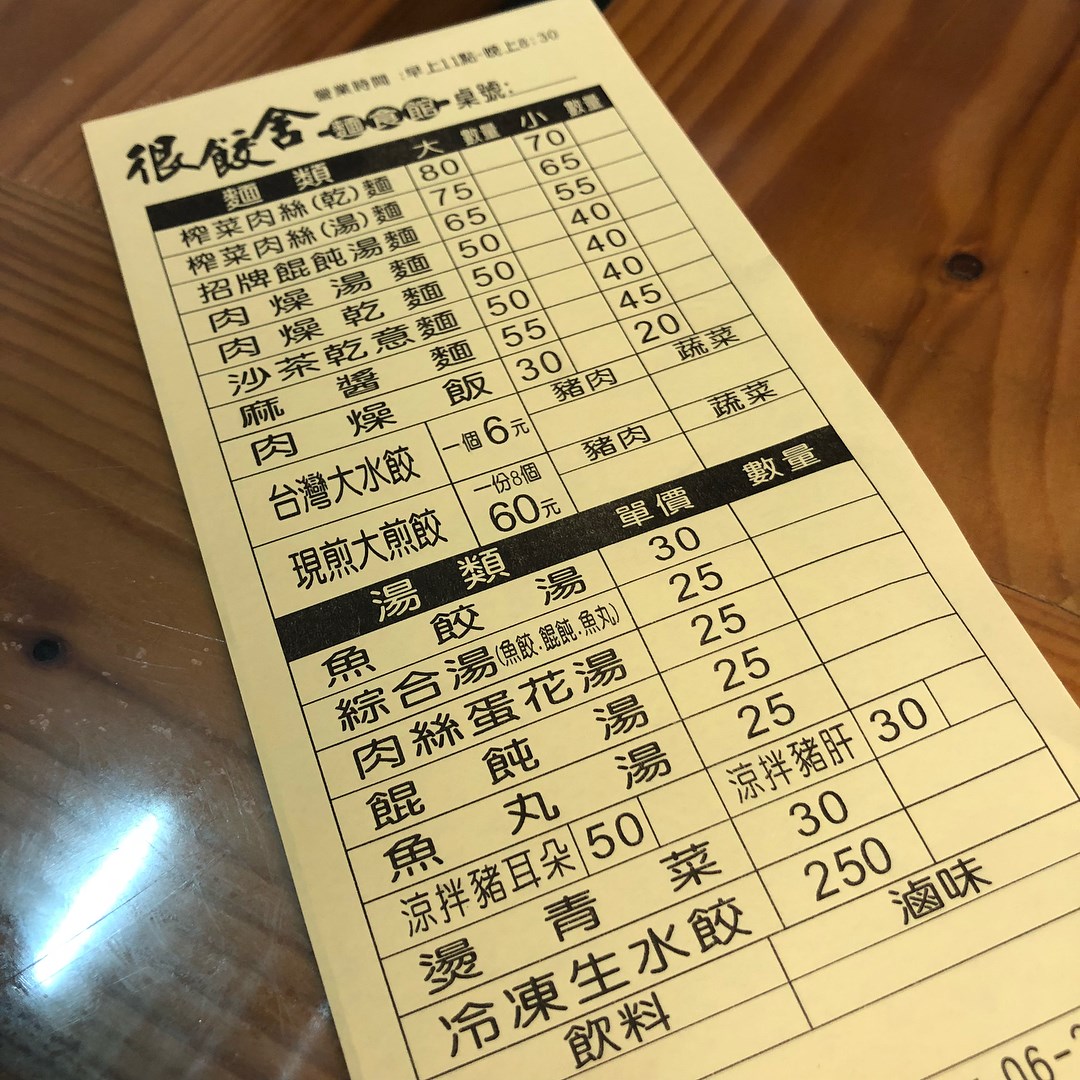 營業時間:早上11點-晚上8:30
很餃舍 麵食館 桌號:
麵類 大 數量 小 數量
榨菜肉絲(乾)麵 80 70
榨菜肉絲(湯)麵 75 65
招牌餛飩湯麵 65 55
肉燥湯麵 50 40
肉燥乾麵 50 40
沙茶乾意麵 50 40
麻醬麵 55 45
肉燥飯 30 20
台灣大水餃 一個6元 豬肉 蔬菜
現煎大煎餃 一份8個 60元 豬肉 蔬菜
湯類 單價 數量
魚餃湯 30
綜合湯(魚餃.餛飩.魚丸) 25
肉絲蛋花湯 25
餛飩湯 25
魚丸湯 25
涼拌豬耳朵 50 涼拌豬肝 30
燙青菜 30
冷凍生水餃 250
飲料 滷味
06-